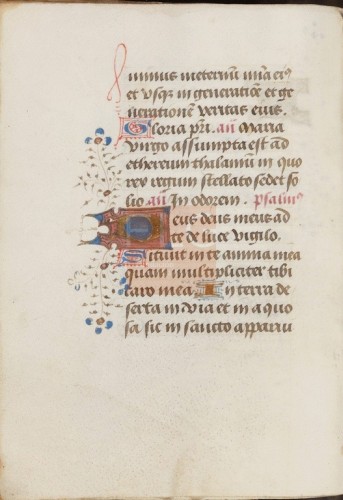 minus in eternum mīa eiꝰ
et vsqꝫ in generatiōē et ge
nerationem veritas eius.
Gloria pr̄i. añ Maria
virgo assumpta est ad
ethereum thalamū in quo
rex regum stellato sedet so
lio. añ In odorem. psalmꝰ
Deus deus meus ad
te de luce vigilo.
Sitiuit in te anima mea
quam multipliciter tibi
caro mea. In terra de
serta in via et in aquo
sa sic in sancto apparui